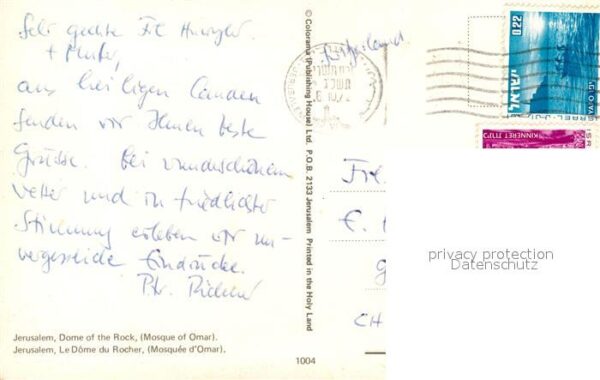 Sehr geehrte Frl.
+ Mutter,
aus heiligen Landen
senden wir Ihnen beste
Grüsse. Bei wunderschönem
Wetter und in friedlichster
Stimmung erleben wir un-
vergessliche Eindrücke.
Jerusalem, Dome of the Rock, (Mosque of Omar).
Jerusalem, Le Dôme du Rocher, (Mosquée d'Omar).
1004
© Colorama (Publishing House) Ltd. P.O.B. 2133 Jerusalem Printed in the Holy Land
Switzerland
0.22
ישראל
KINNERET
Frl.
CH
privacy protection
Datenschutz